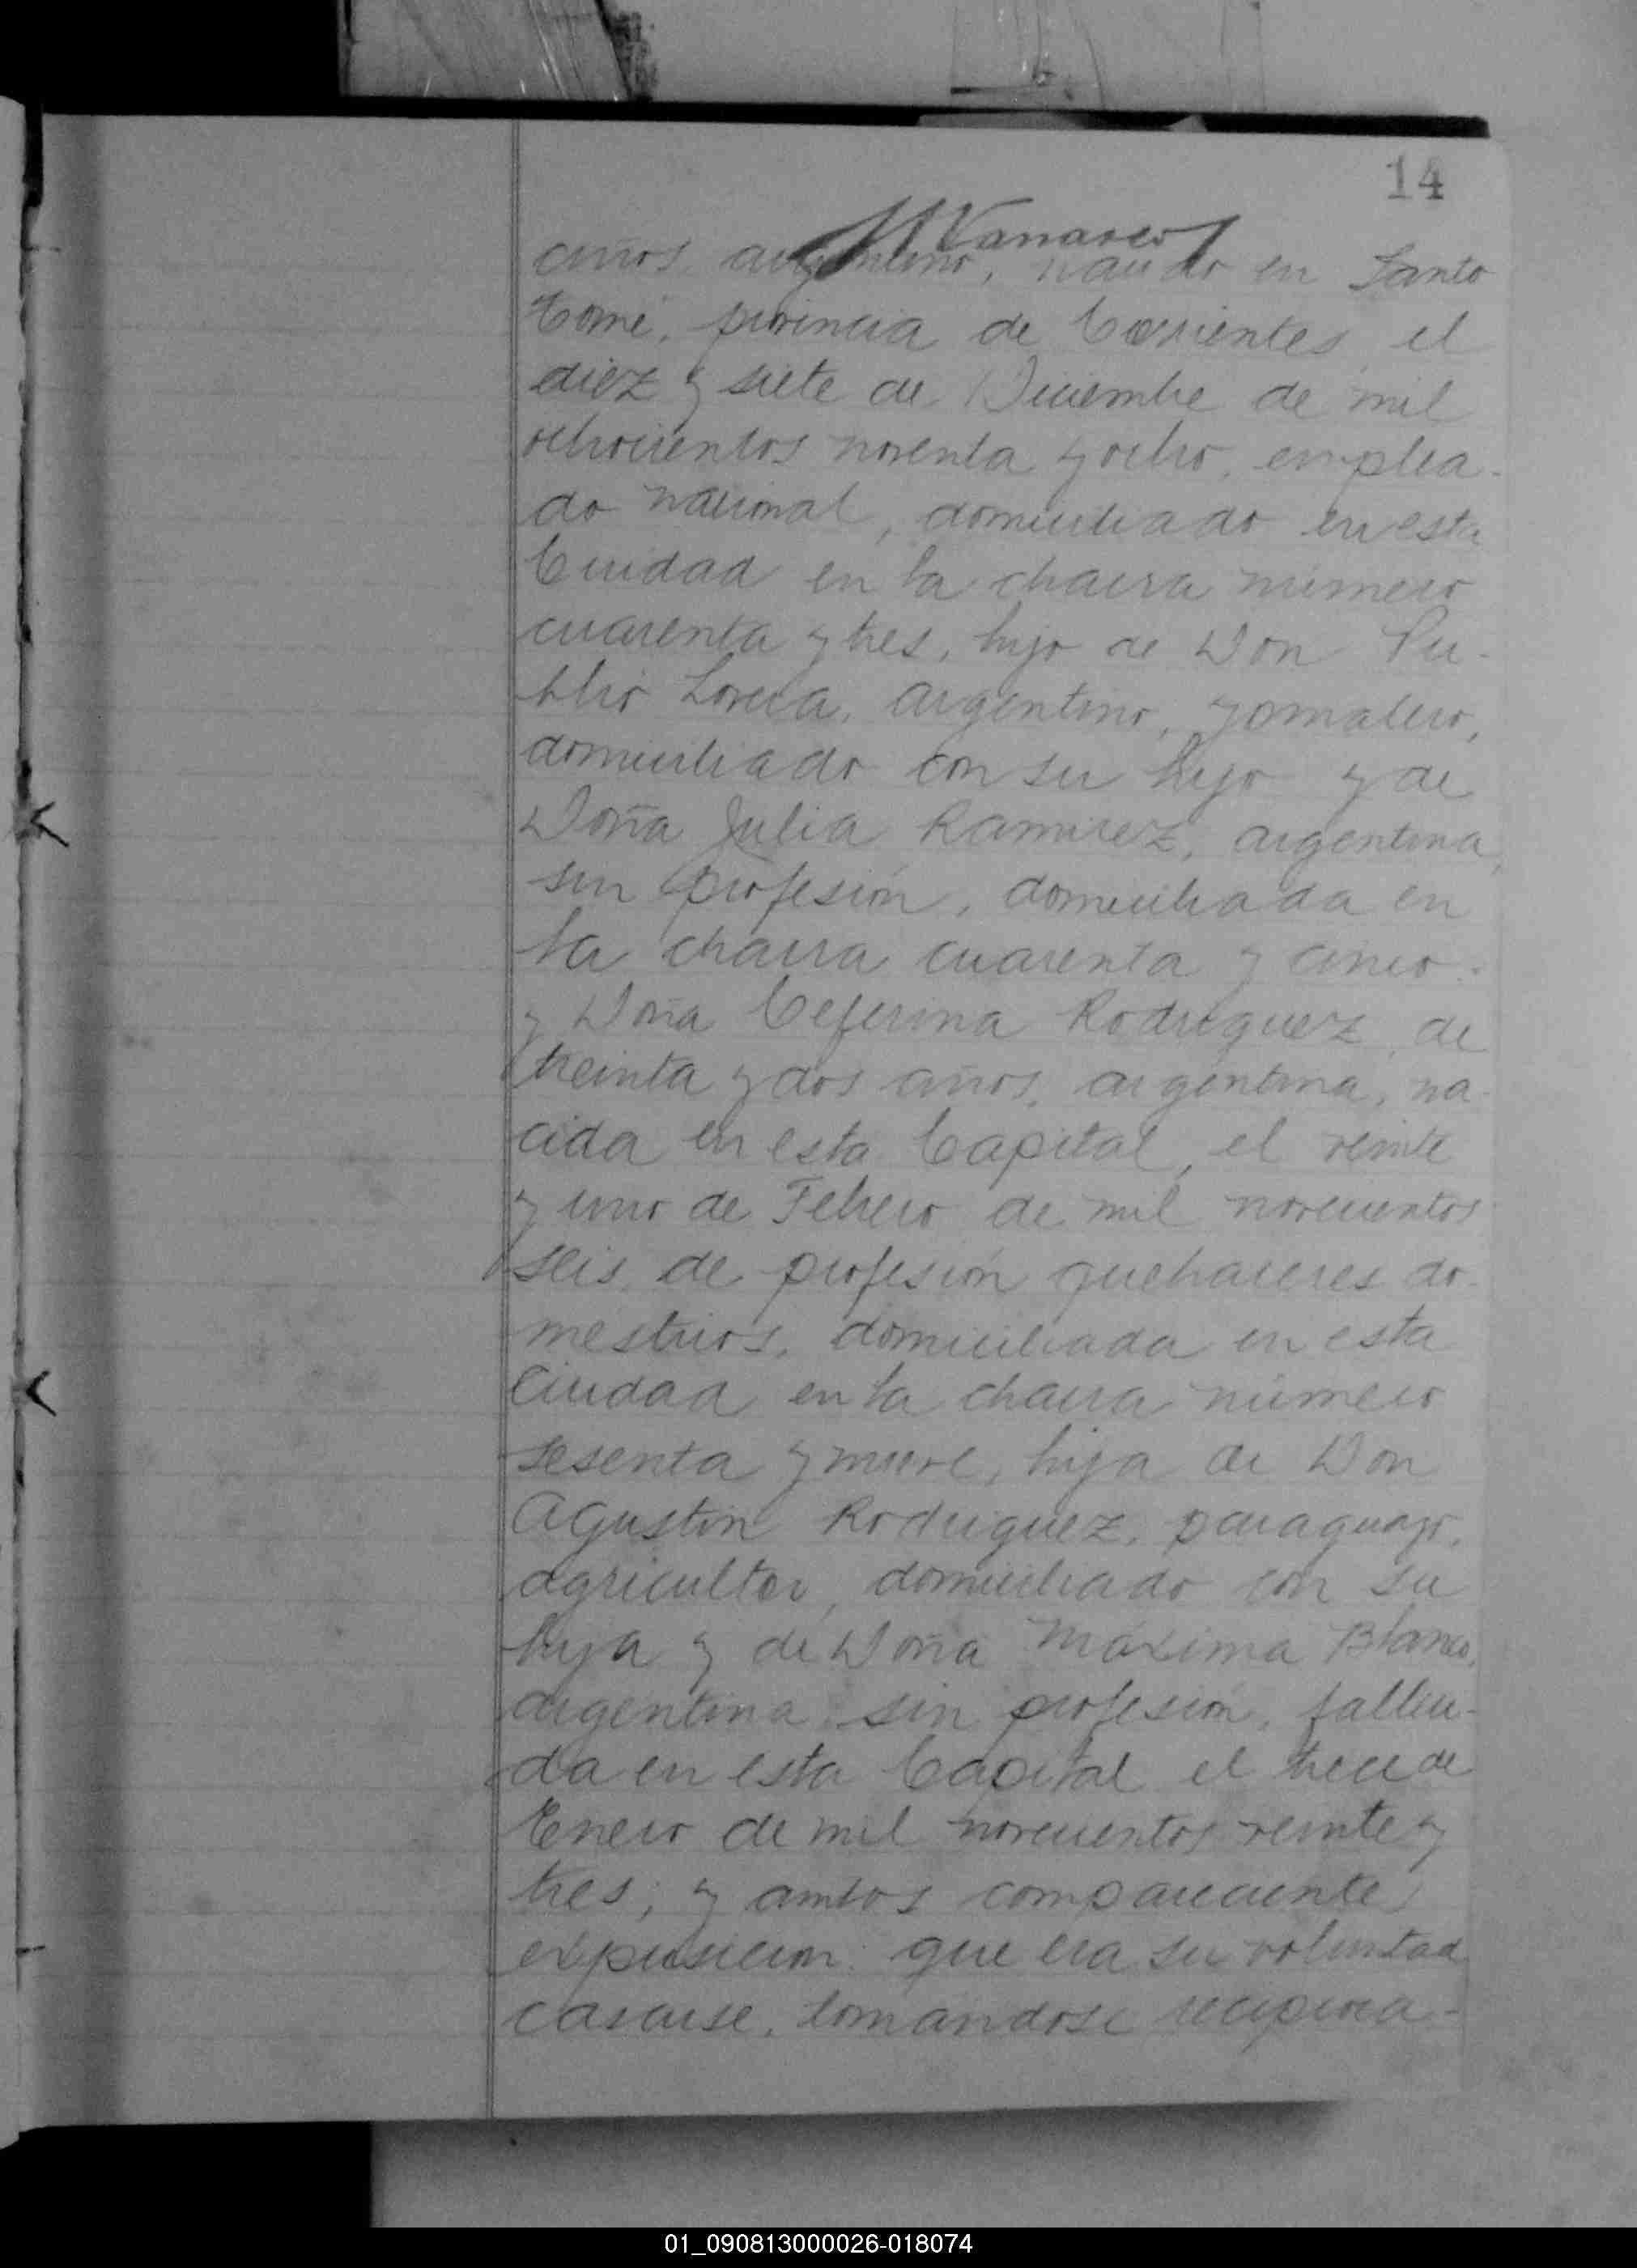 14
años argentino, nacido en Santo
Tomé, provincia de Corrientes, el
diez y siete de Diciembre de mil
ochocientos noventa y ocho, emplea-
do nacional, domiciliado en esta
Ciudad en la chacra número
cuarenta y tres, hijo de Don Pu-
blio Lorca, argentino, jornalero,
domiciliado con su hijo y de
Doña Julia Ramirez, argentina,
sin profesión, domiciliada en
la chacra cuarenta y cinco.
y Doña Ceferina Rodriguez, de
treinta y dos años, argentina, na-
cida en esta Capital, el veinte
y uno de Febrero de mil novecientos
seis, de profesión quehaceres do-
mesticos, domiciliada en esta
Ciudad en la chacra número
sesenta y nueve, hija de Don
Agustin Rodriguez, paraguayo,
agricultor, domiciliado con su
hija y de Doña Máxima Blanco,
argentina, sin profesión, falleci-
da en esta Capital el trece de
Enero de mil novecientos veinte y
tres; y ambos compareciente
expusieron: que era su voluntad
casarse, tomándose recíproca-
01_090813000026-018074